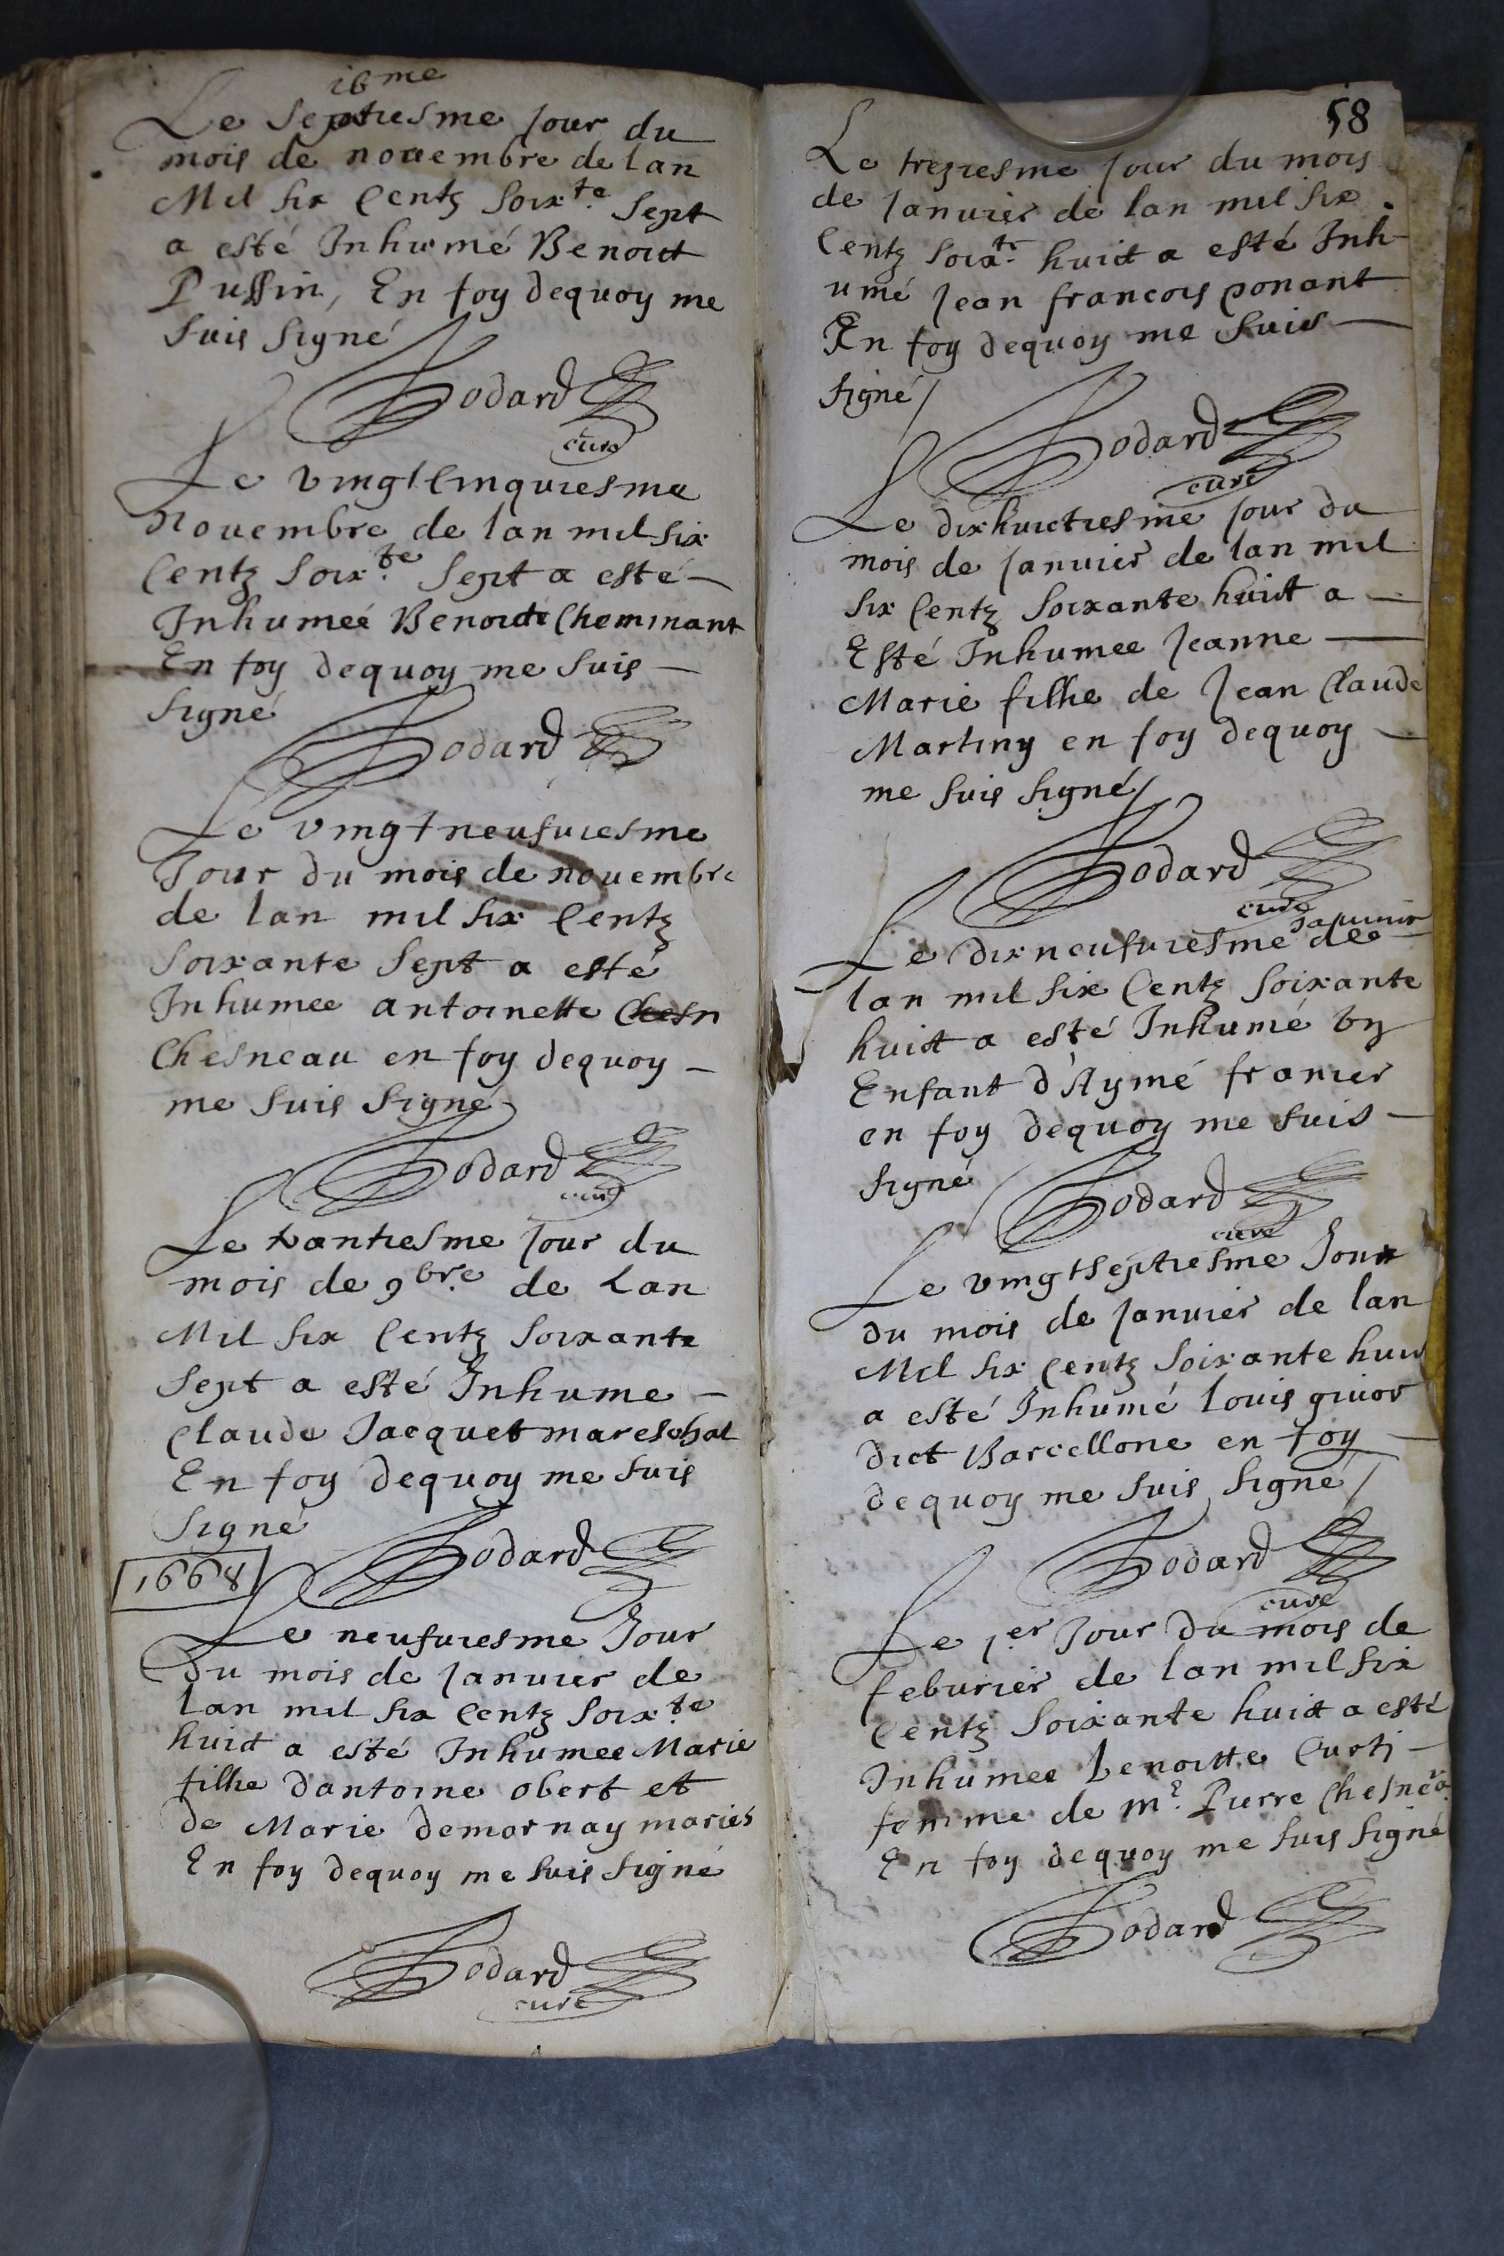 i6me
Le Septiesme Jour du
mois de nouembre de lan
Mil six Centz soixte. Sept
a esté Inhumé Benoict
Pussin, En foy dequoy me
suis signé
Godard
curé
Le vingtCinquiesme
Nouembre de lan mil six
Centz soixte. Sept a esté
Inhumeé Benoicte Cheminant
En foy dequoy me suis
signé
Godard
Le vingtneufuiesme
Jour du mois de nouembre
de lan mil six Centz
soixante Sept a esté
Inhumee antoinette Chesn
Chesneau en foy dequoy
me suis signé
Godard
curé
Le trantiesme Jour du
mois de 9bre. de Lan
Mil six Centz soixante
Sept a esté Inhume
Claude Jacquet mareschal
En foy dequoy me suis
signé
Godard
1668
Le neufuiesme Jour
du mois de Januier de
lan mil six Centz soixte.
huict a esté Inhumee Marie
filhe dantoine obert et
de Marie demornay mariés
En foy dequoy me suis signé
Godard
curé
58
Le treziesme Jour du mois
de Januier de lan mil six
Centz soixte. huict a esté Inh
umé Jean francois ponant
En foy dequoy me suis
signé
Godard
curé
Le dixhuictiesme Jour du
mois de Januier de lan mil
six Centz soixante huict a
Esté Inhumee Jeanne
Marie filhe de Jean Claude
Martiny en foy dequoy
me suis signé
Godard
curé
Januier
Le dixneufuiesme de
lan mil six Centz soixante
huict a esté Inhumé vn
Enfant d'Aymé franier
en foy dequoy me suis
signé
Godard
curé
Le vingtseptiesme Jour
du mois de Januier de lan
Mil six Centz soixante huict
a esté Inhumé Louis giuor
dict Barcellone en foy
dequoy me suis signé
Godard
curé
Le 1er. Jour du mois de
feburier de lan mil six
Centz soixante huict a esté
Inhumee Benoitte Curti
femme de mr. Pierre Chesneau
En foy dequoy me suis signé
Godard